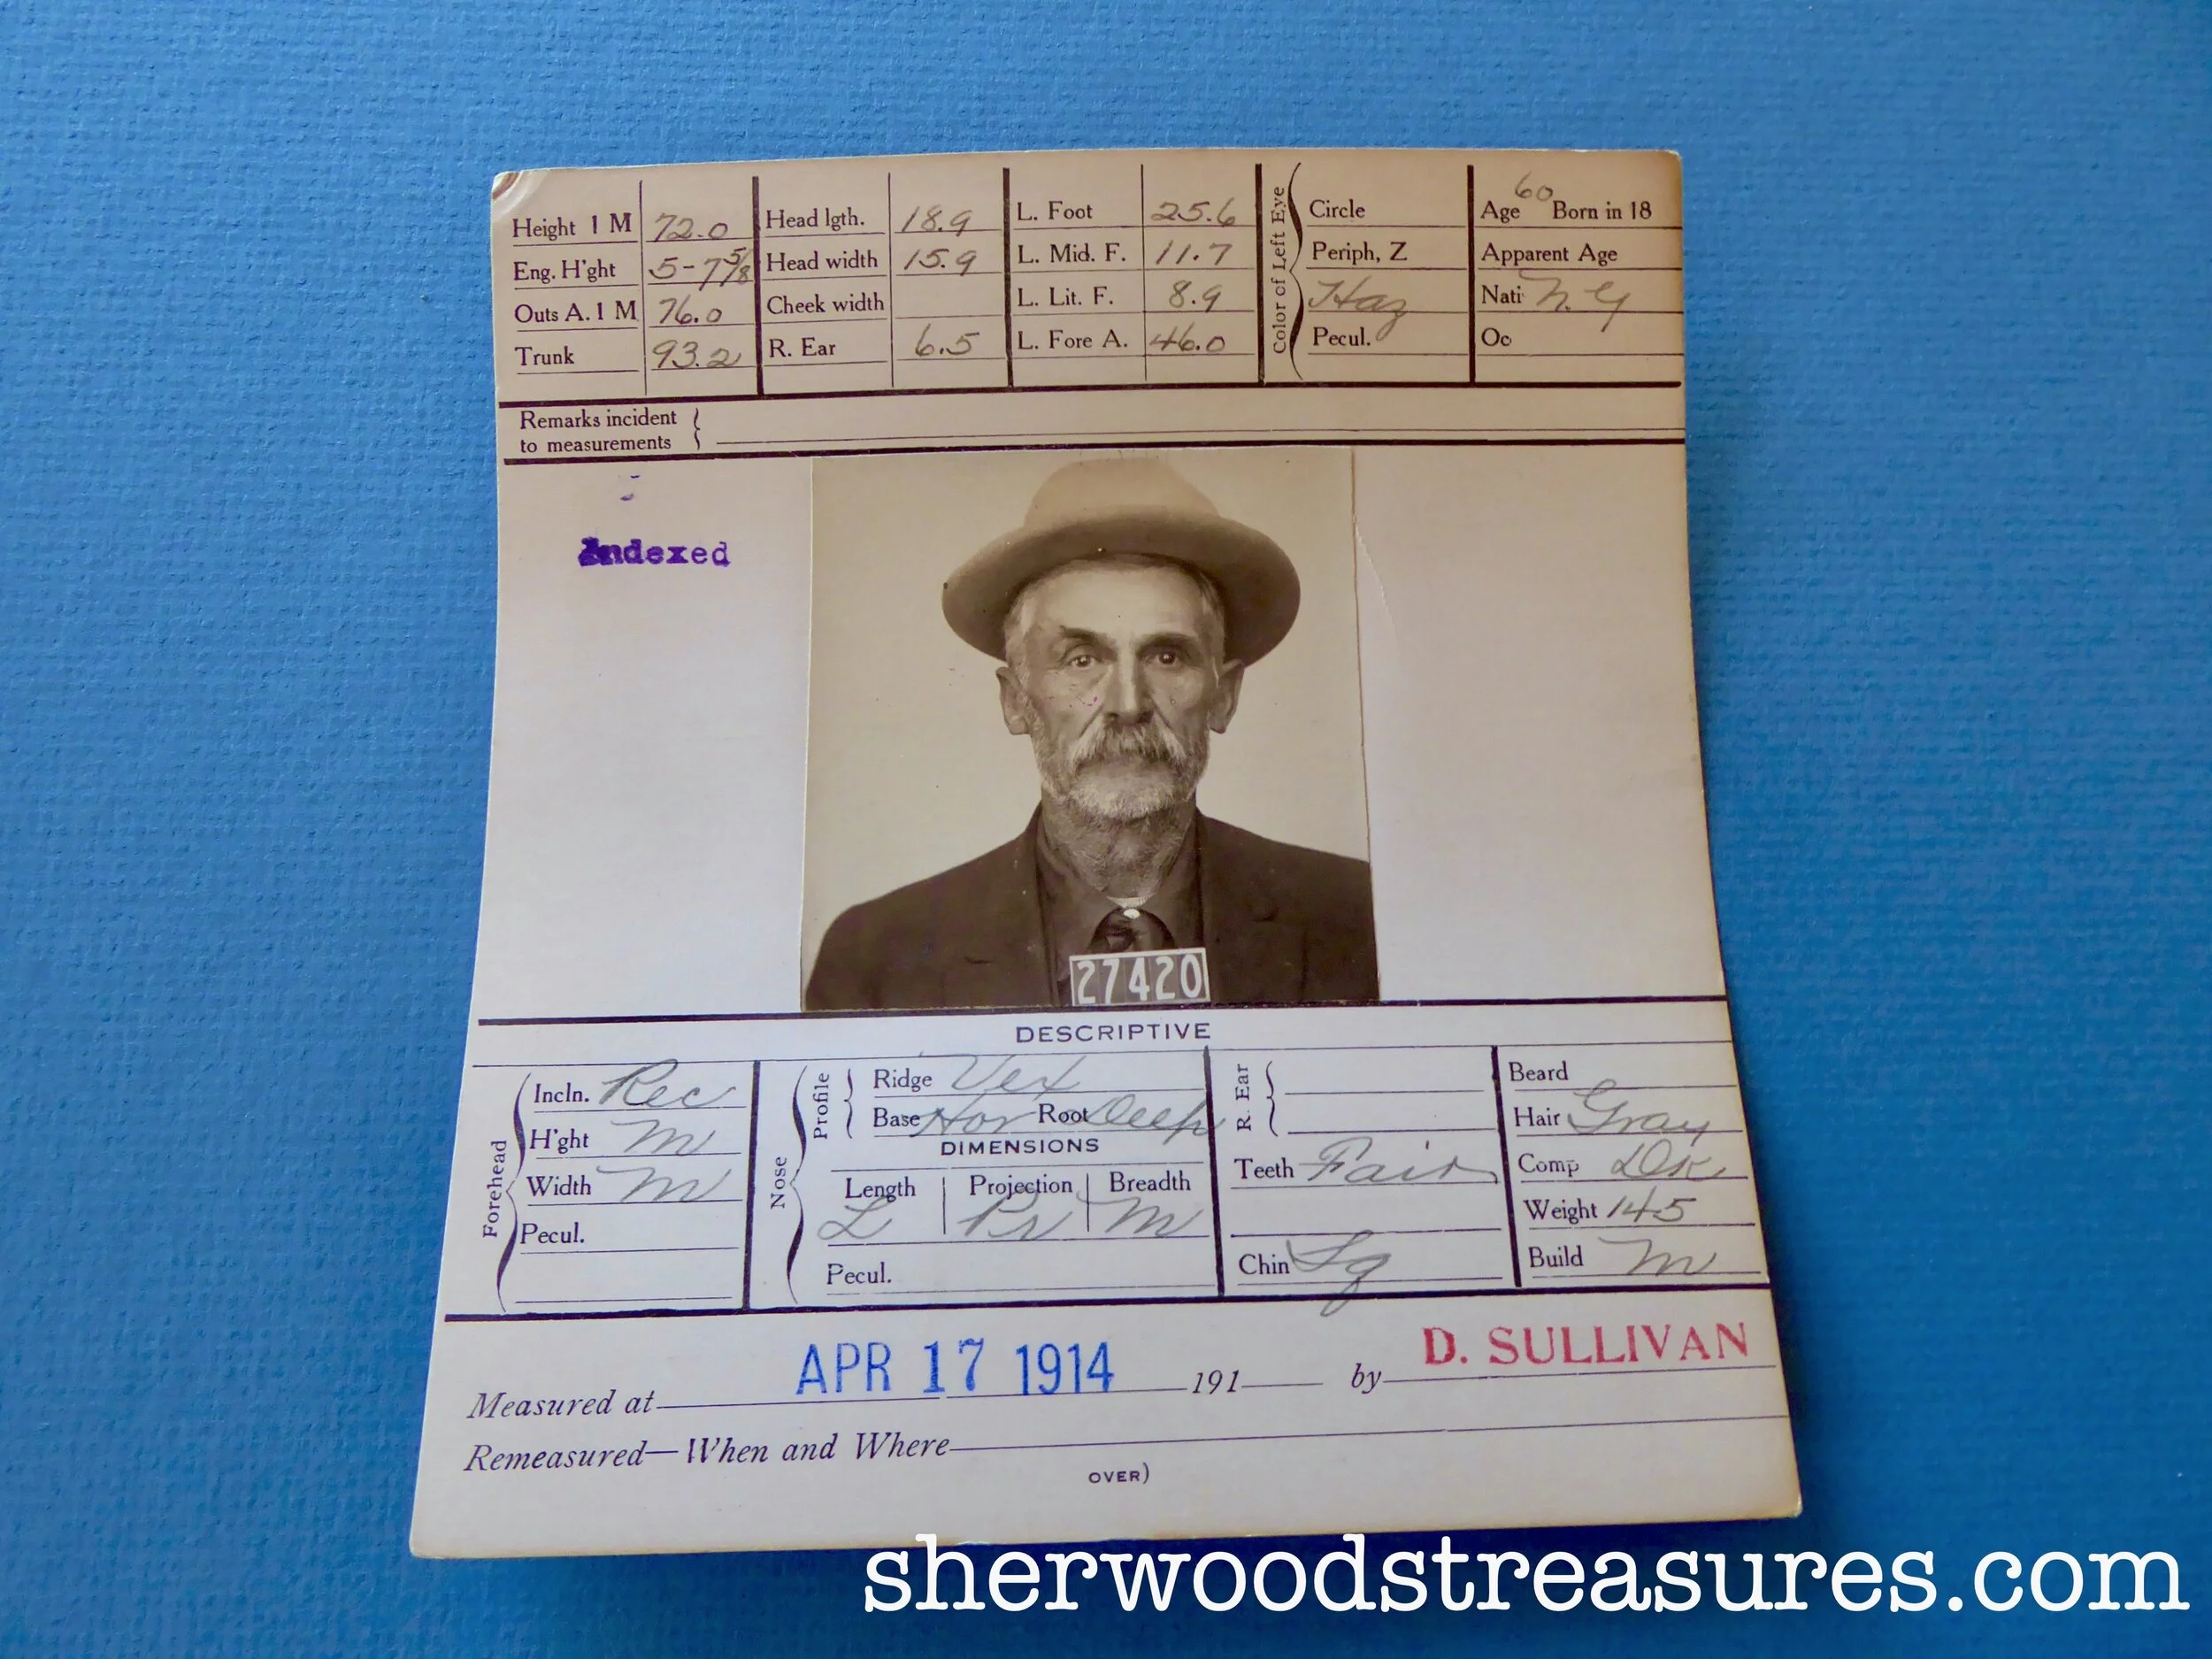 Height 1 M 72.0 Head lgth. 18.9 L. Foot 25.6 Circle Age 60 Born in 18
Eng. H'ght 5-7 5/8 Head width 15.9 L. Mid. F. 11.7 Periph, Z Apparent Age
Outs A. 1 M 76.0 Cheek width L. Lit. F. 8.9 Haz Nati N.Y
Trunk 93.2 R. Ear 6.5 L. Fore A. 46.0 Pecul. Oc
Color of Left Eye
Remarks incident
to measurements
Indexed
27420
DESCRIPTIVE
Forehead
Incln. Rec
H'ght m
Width m
Pecul.
Nose
Profile
Ridge Vex
Base Hor Root Deep
DIMENSIONS
Length Projection Breadth
L Pr m
Pecul.
R. Ear
Teeth Fair
Chin Sq
Beard
Hair Gray
Comp Dk
Weight 145
Build m
Measured at APR 17 1914 191 by D. SULLIVAN
Remeasured—When and Where
OVER)
sherwoodstreasures.com